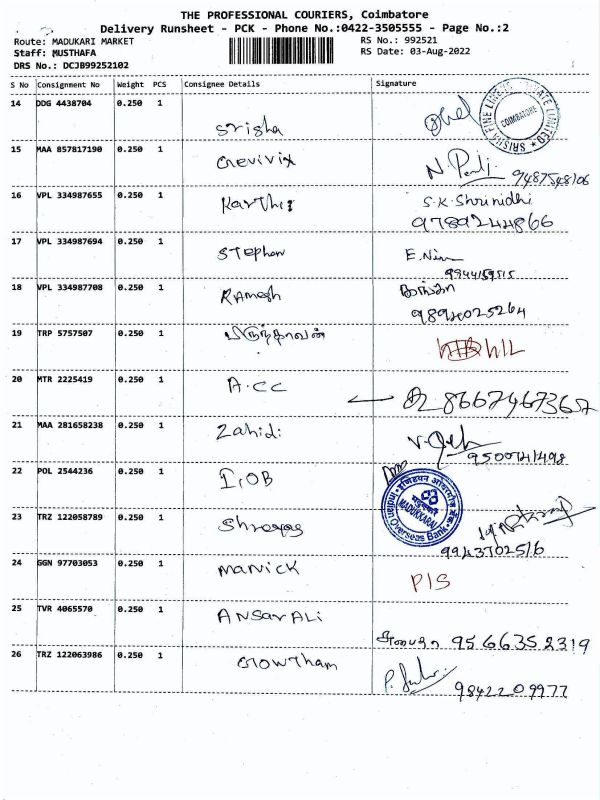 THE PROFESSIONAL COURIERS, Coimbatore
Delivery Runsheet - PCK - Phone No.:0422-3505555 - Page No.:2
Route: MADUKARI MARKET RS No.: 992521
Staff: MUSTHAFA RS Date: 03-Aug-2022
DRS No.: DCJB99252102
S No Consignment No Weight PCS Consignee Details Signature
14 DDG 4438704 0.250 1 Srisha
SRISHA FINE LINE PRIVATE LIMITED
COIMBATORE
15 MAA 857817190 0.250 1 9487548106
16 VPL 334987655 0.250 1 Karthi S.K. Shrinidhi
9789244866
17 VPL 334987694 0.250 1 Stephen E. Nin
9944159515
18 VPL 334987708 0.250 1 Ramesh
9894025264
19 TRP 5757507 0.250 1 பிருந்தாவன்
20 MTR 2225419 0.250 1 A.CC 8667467367
21 MAA 281658238 0.250 1 Zahidi
22 POL 2544236 0.250 1 I.O.B
इण्डियन ओवरसीज़ बैंक
MADUKKARAI
Indian Overseas Bank
23 TRZ 122058789 0.250 1 Shreyas
9943702516
24 GGN 97703053 0.250 1 Manick P1S
25 TVR 4065570 0.250 1 ANSAR ALI
9566352319
26 TRZ 122063986 0.250 1 Gowtham
9842209977